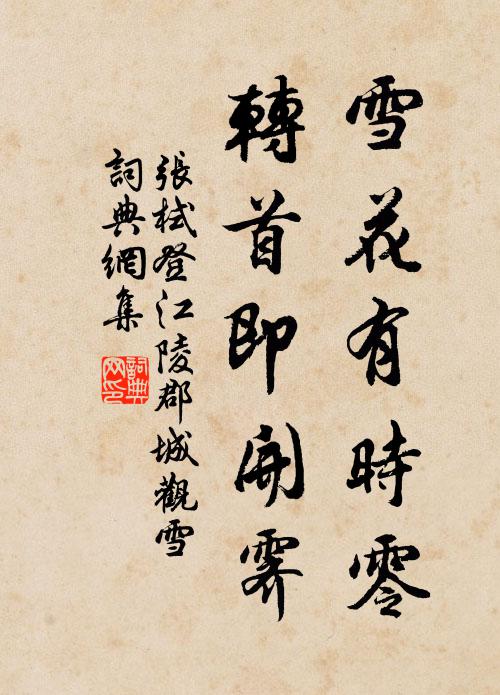 雪花有時零
轉首即開霽
張栻登江陵郡城觀雪
詞典網集
詞典
网印